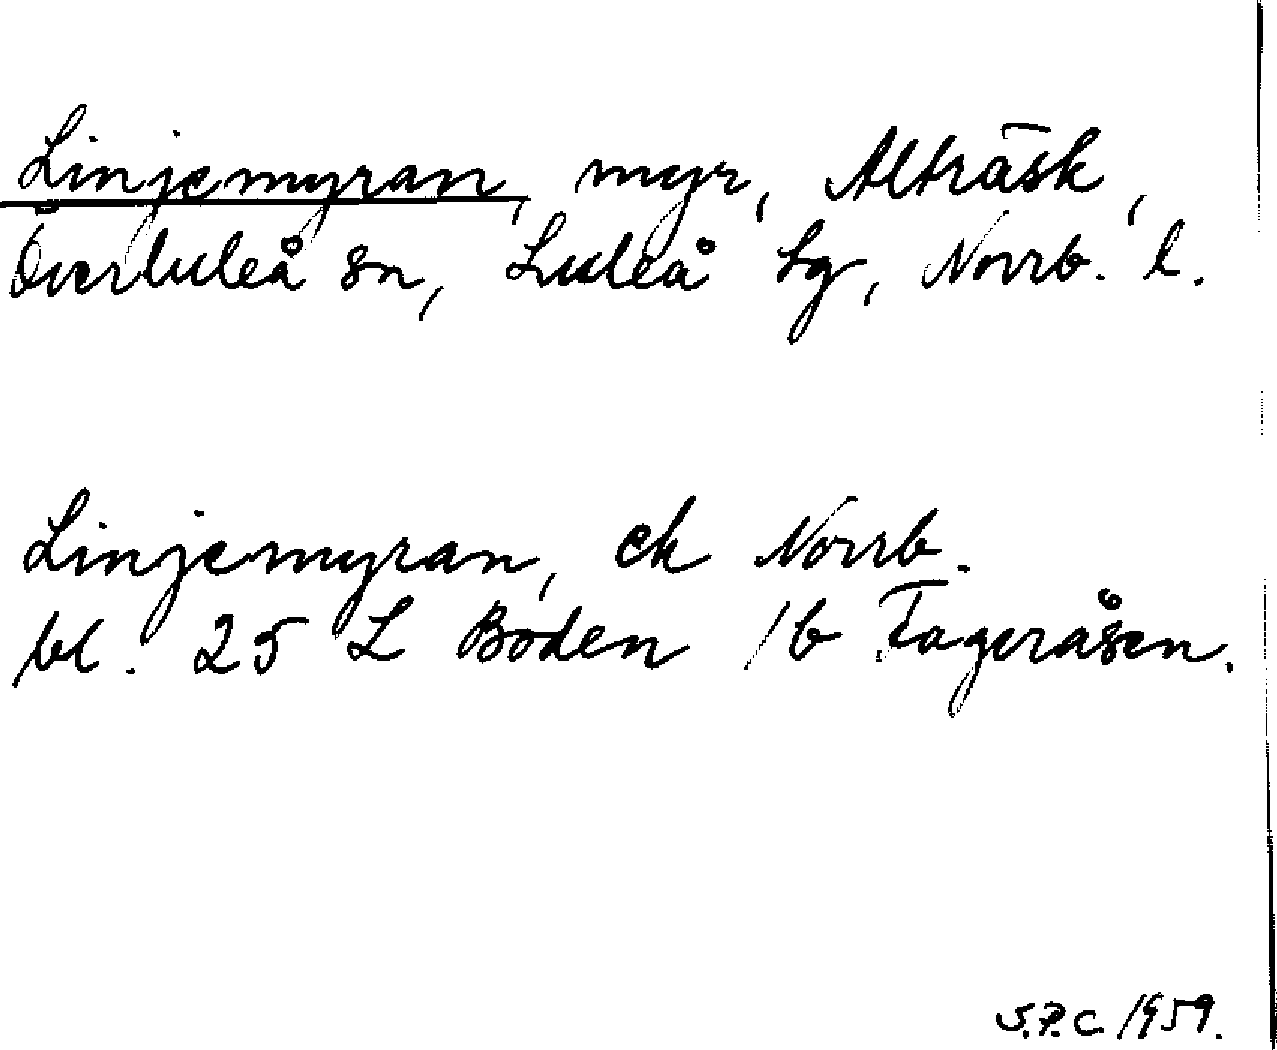 Linjemyran, myr, Alträsk,
Överluleå sn, Luleå tg, Norrb. l.
Linjemyran, ek Norrb.
bl. 25 L Boden 1b Fageråsen.
S.P.C. 1959.